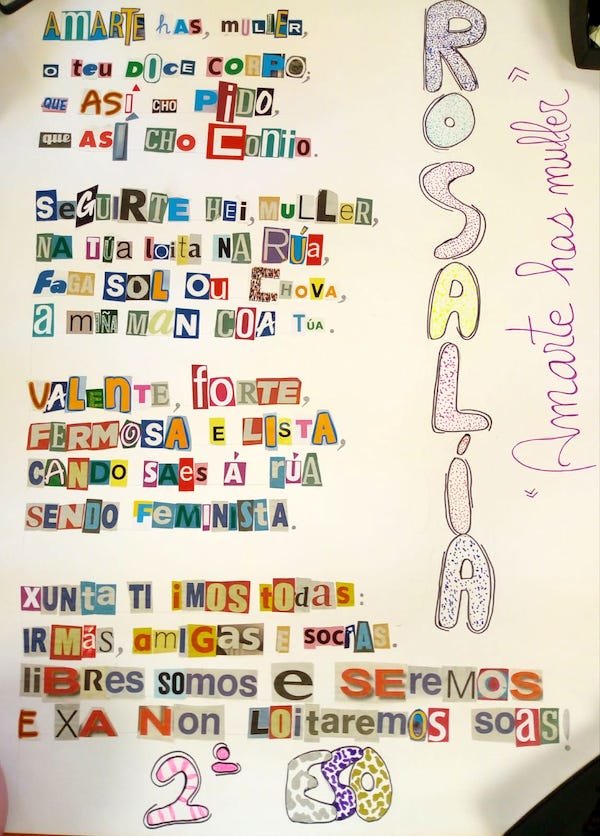 AMARTE has, MULLER,
o teu DOCE CORPO;
QUE ASÍ CHO PIDO,
que ASÍ CHO CONTO.
SeGUIRTE HEI, MULLER,
NA TÚA loita NA RÚA,
faGA SOL OU CHOVA,
a miÑA MAN COA TÚA.
VALENTE, forte,
FERMOSA E LISTA,
CANDO SAES Á RÚA
SENDO FEMINISTA.
XUNTA TI iMOS todas:
IRMÁS, amIGAS E socIAS.
liBRes somos e SEReMOS
E XA Non LOitaremos soas!
ROSALÍA
"Amarte has muller"
2º ESO